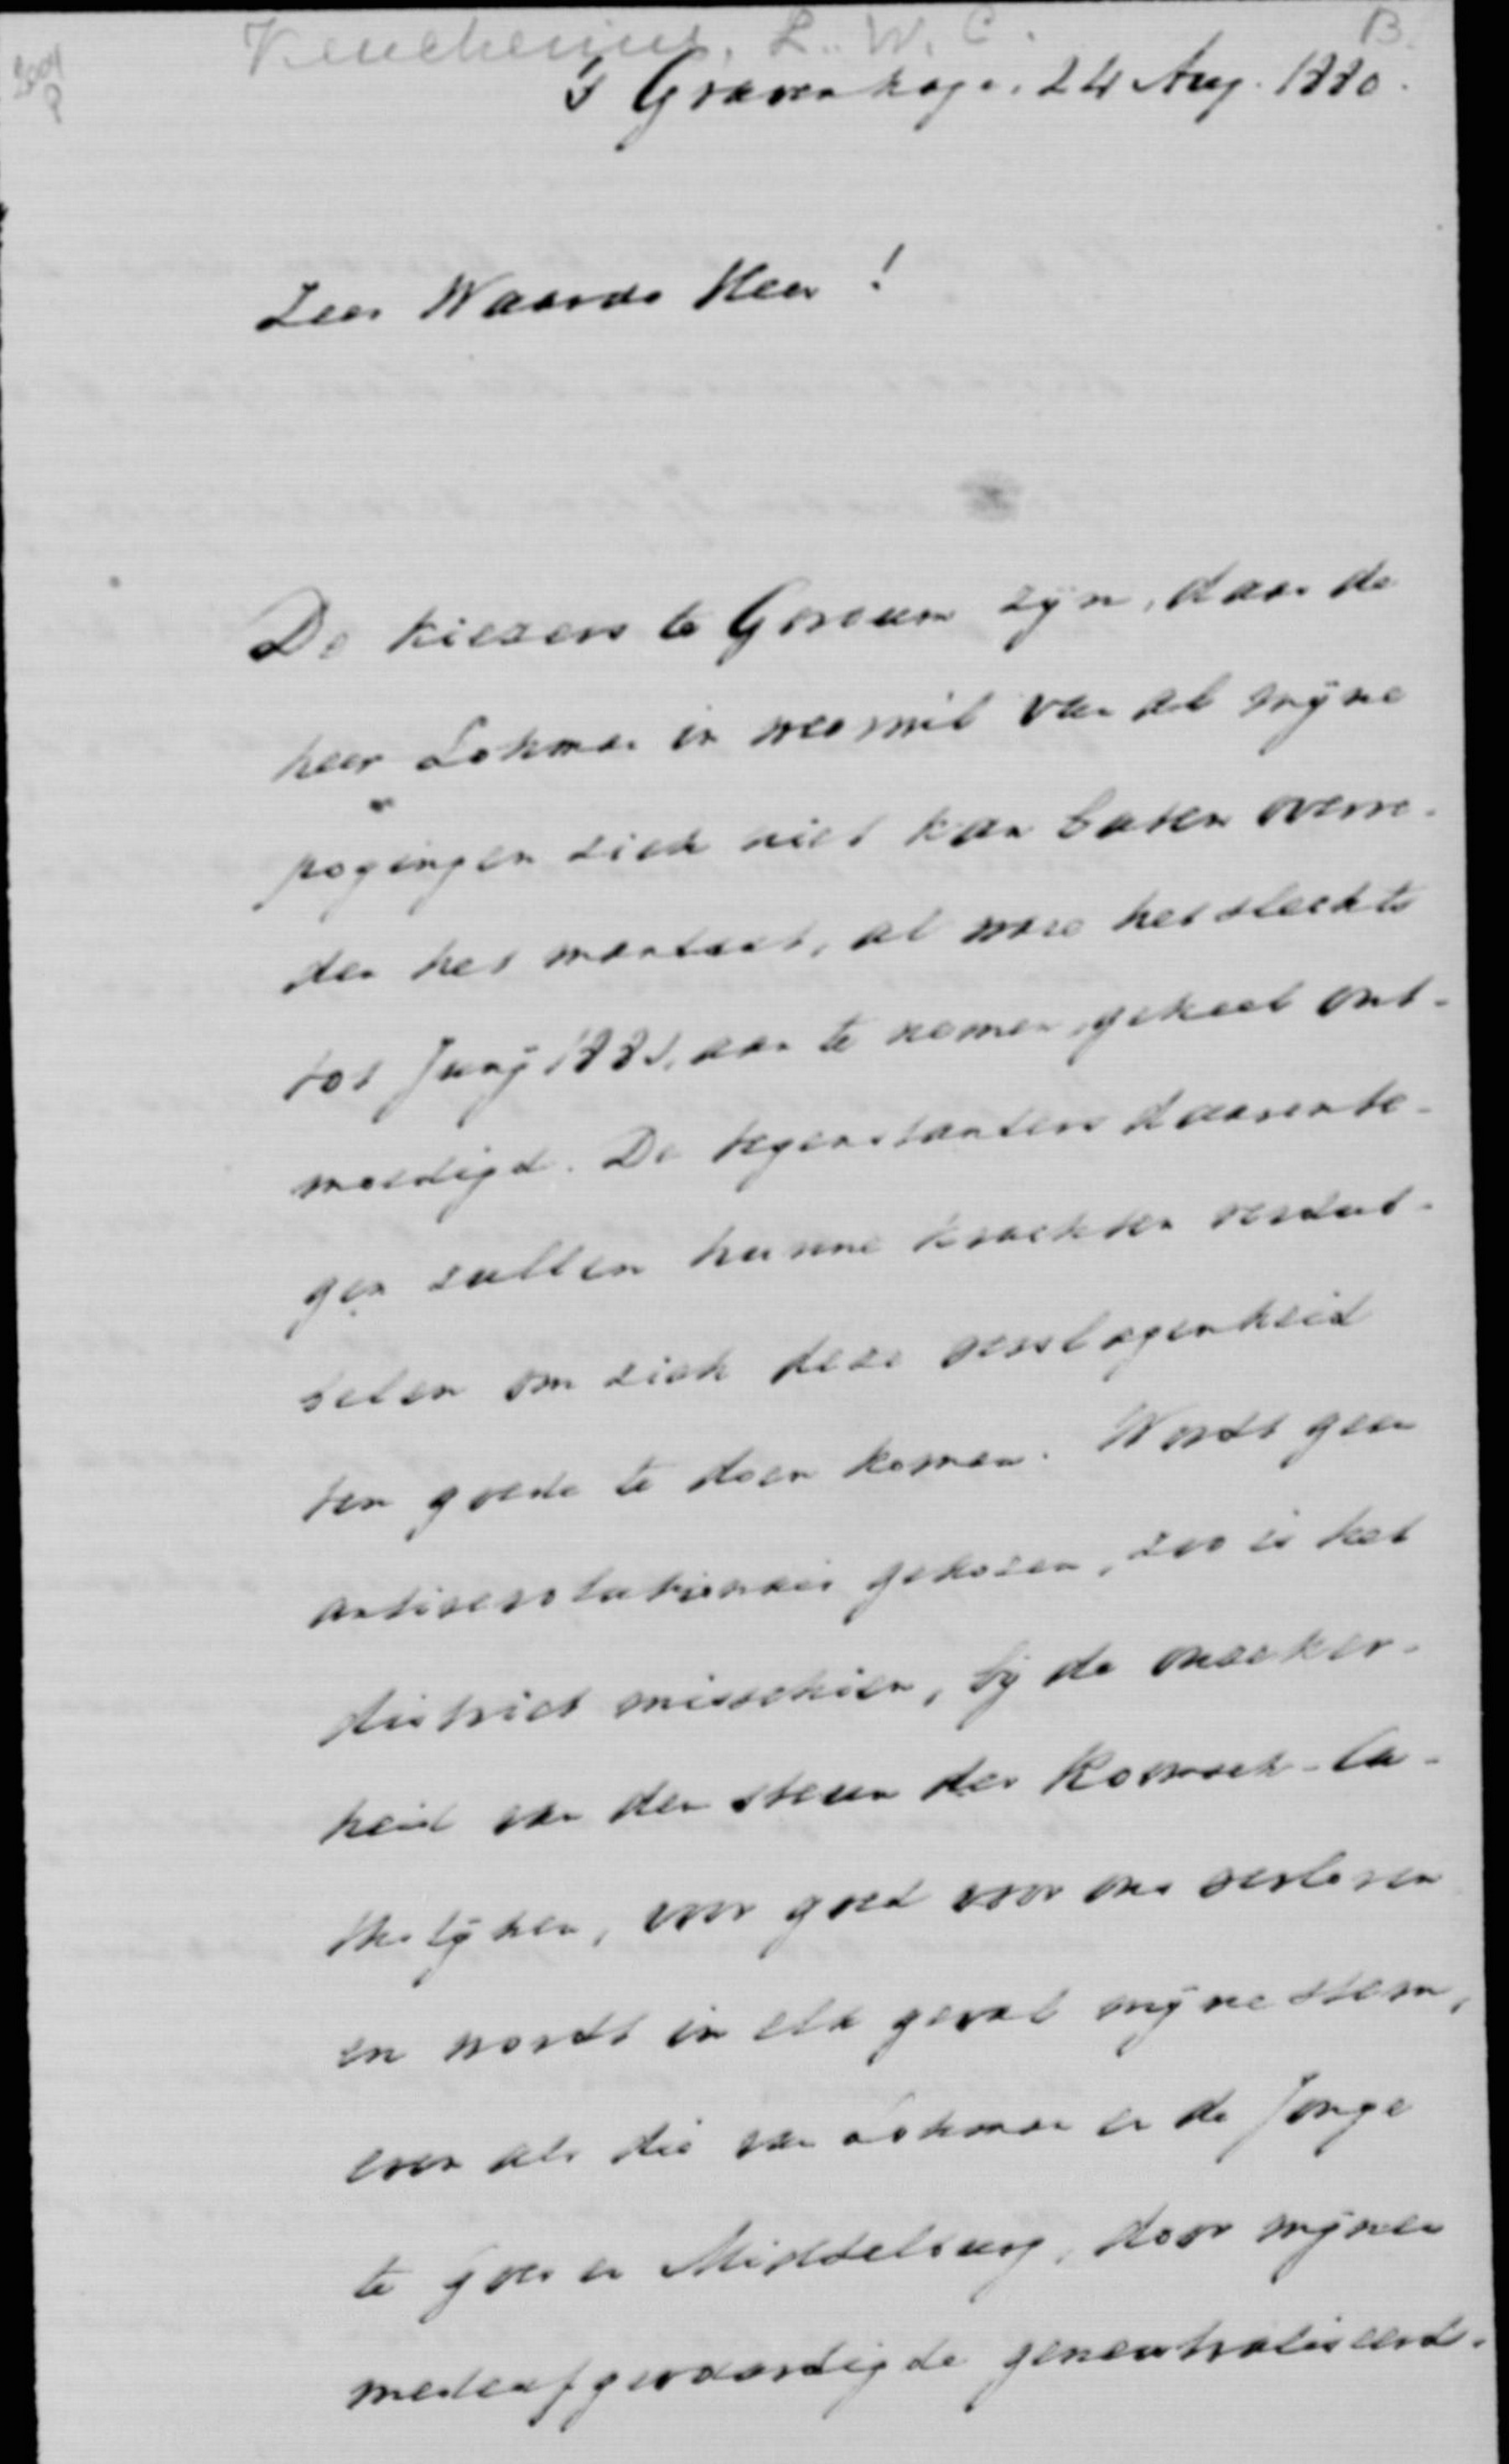 Keuchenius, L. W. C.
B.
's Gravenhage, 24 Aug. 1880.
Zeer Waarde Heer!
De kiezers te Gorcum zijn, daar de
heer Lohman in weerwil van al mijne
pogingen zich niet kan laten overre-
den het mandaat, al ware het slechts
tot Junij 1881, aan te nemen, geheel ont-
moedigd. De tegenstanders daarente-
gen zullen hunne krachten verdub-
belen om zich deze verslagenheid
ten goede te doen komen. Wordt geen
antirevolutionair gekozen, zoo is het
district misschien, bij de onzeker-
heid van den steun der Roomsch-Ca-
tholijken, voor goed voor ons verloren
en wordt in elk geval mijne stem,
even als die van Lohman en de Jonge
te Goes en Middelburg, door mijnen
medeafgevaardigde geneutraliseerd.